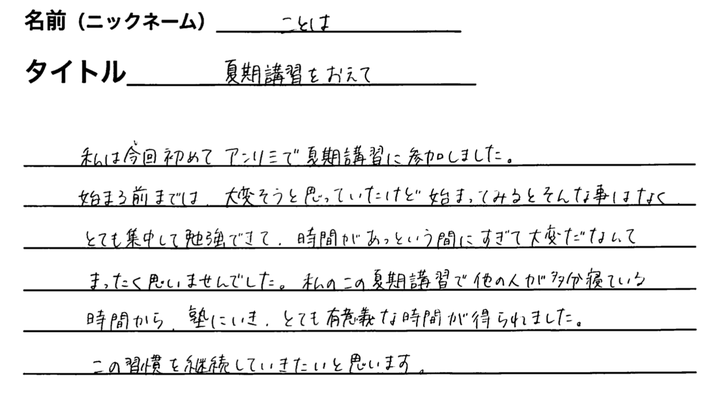 名前（ニックネーム） ことは
タイトル 夏期講習をおえて
私は今回初めてアンリミで夏期講習に参加しました。
始まる前までは、大変そうと思っていたけど始まってみるとそんな事はなく
とても集中して勉強できて、時間があっという間にすぎて大変だなんて
まったく思いませんでした。私のこの夏期講習で他の人が多分寝ている
時間から、塾にいき、とても有意義な時間が得られました。
この習慣を継続していきたいと思います。